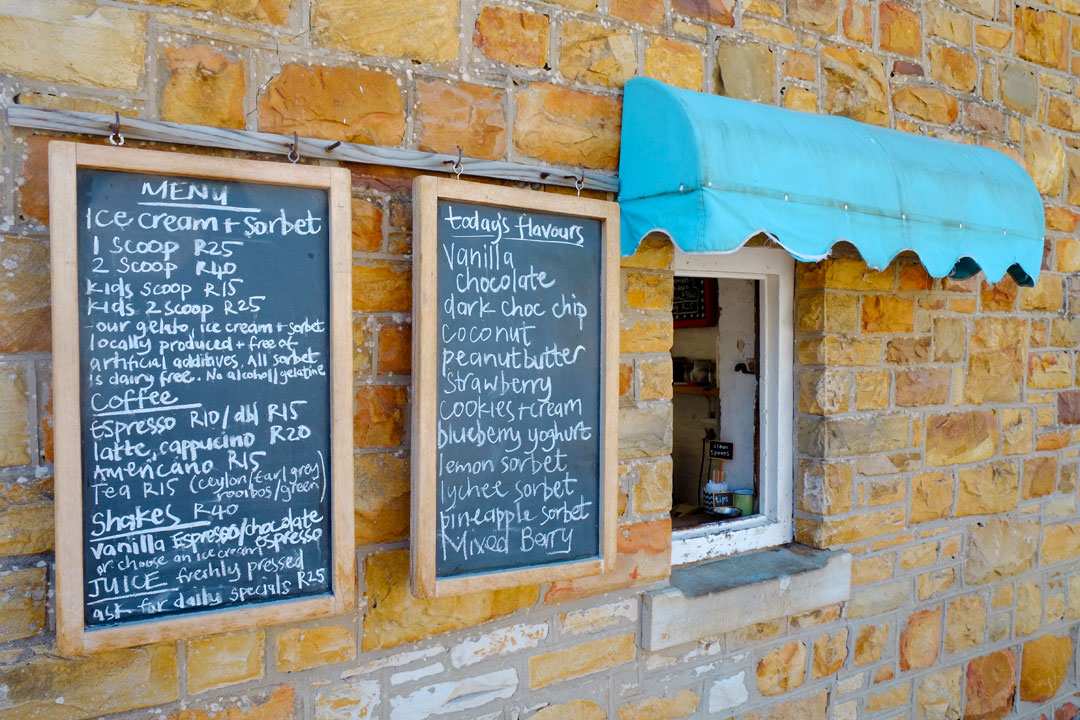 MENU
Ice cream + Sorbet
1 Scoop R25
2 Scoop R40
Kids Scoop R15
Kids 2 scoop R25
our gelato, ice cream + sorbet
locally produced + free of
artificial additives. All sorbet
is dairy free. No alcohol/gelatine
Coffee
Espresso R10/dbl R15
latte, cappucino R20
Americano R15
Tea R15 (ceylon/earl grey
rooibos/green)
Shakes R40
vanilla Espresso/chocolate
espresso
or choose an ice cream
JUICE freshly pressed
ask for daily specials R25
today's flavours
Vanilla
chocolate
dark choc chip
coconut
peanut butter
Strawberry
cookies + cream
blueberry yoghurt
lemon sorbet
lychee sorbet
pineapple sorbet
Mixed Berry
clean
spoons
tips